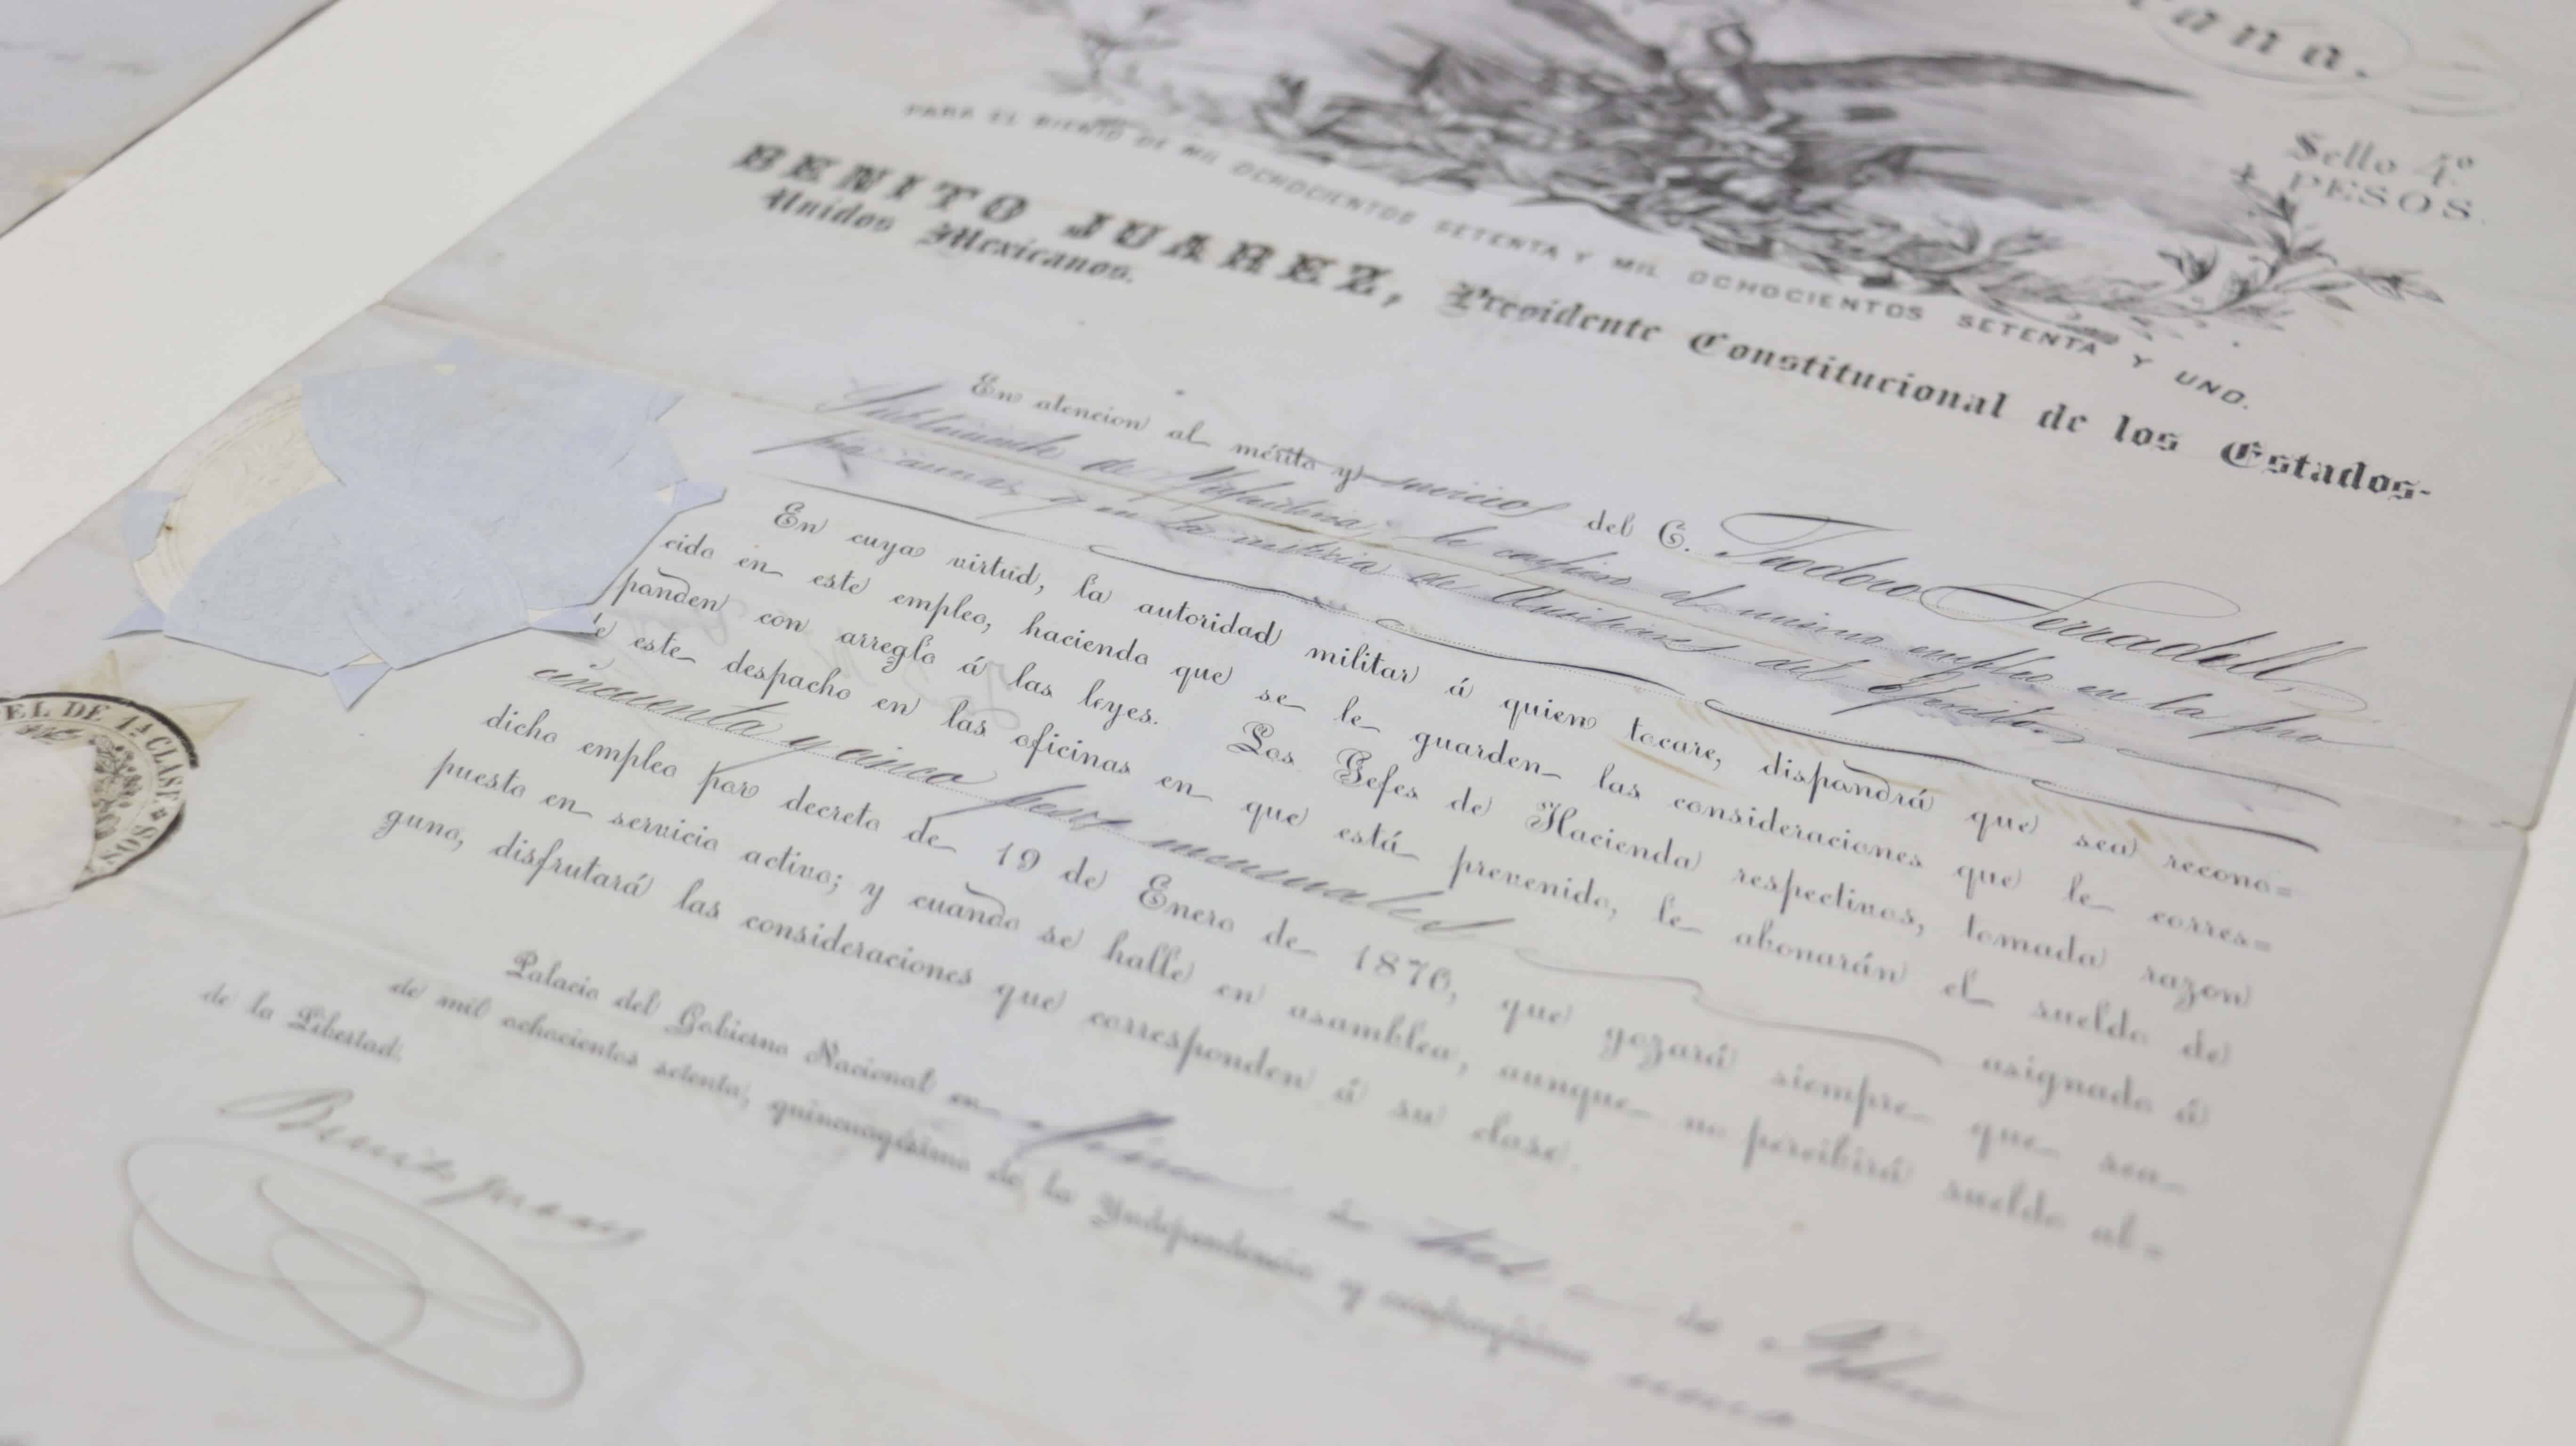 ana.
Sello 4º
4 PESOS.
PARA EL BIENIO DE MIL OCHOCIENTOS SETENTA Y MIL OCHOCIENTOS SETENTA Y UNO.
BENITO JUAREZ, Presidente Constitucional de los Estados-
Unidos Mexicanos.
En atencion al mérito y servicios del C. Teodoro Serradell,
Subteniente de Infantería, le confiero el mismo empleo en la pro
pia arma, y en la milicia de Auxiliares del Ejército
En cuya virtud, la autoridad militar á quien tocare, dispondrá que sea recono=
cido en este empleo, haciendo que se le guarden las consideraciones que le corres=
panden con arreglo á las leyes. Los Gefes de Hacienda respectivos, tomada razon
e este despacho en las oficinas en que está prevenido, le abonarán el sueldo de
cincuenta y cinco pesos mensuales asignado á
dicho empleo por decreto de 19 de Enero de 1870, que gozará siempre que sea
puesto en servicio activo; y cuando se halle en asamblea, aunque no percibirá sueldo al=
guno, disfrutará las consideraciones que corresponden á su clase.
Palacio del Gobierno Nacional en México á tres de
de mil ochocientos setenta, quincuagésimo de la Yndependencia y
de la Libertad.
Benito Juarez
EL DE 1ª CLASE
SOS